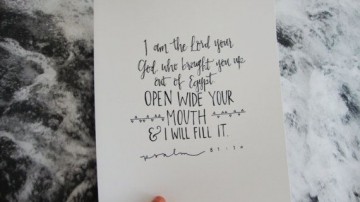 I am the Lord your
God, who brought you up
out of Egypt
OPEN WIDE YOUR
MOUTH
& I WILL FILL IT.
psalm 81:10